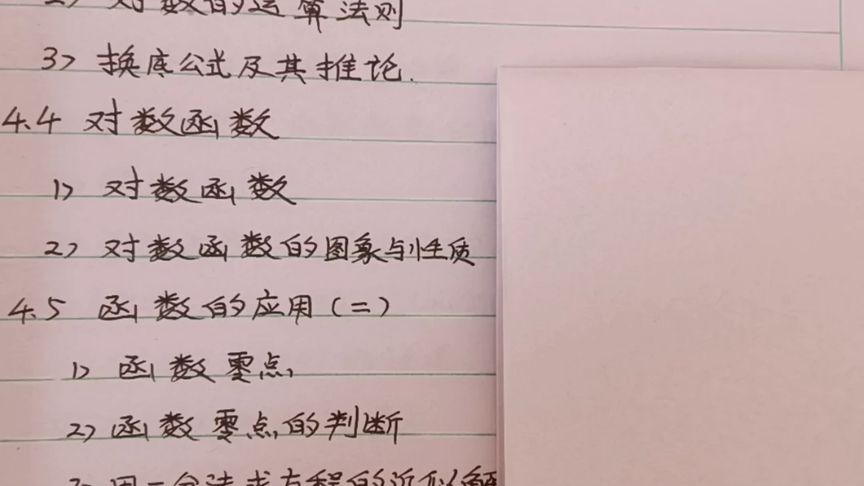 2> 对数的运算法则
3> 换底公式及其推论.
4.4 对数函数
1> 对数函数
2> 对数函数的图象与性质
4.5 函数的应用(二)
1> 函数零点
2> 函数零点的判断
3> 用二分法求方程的近似解